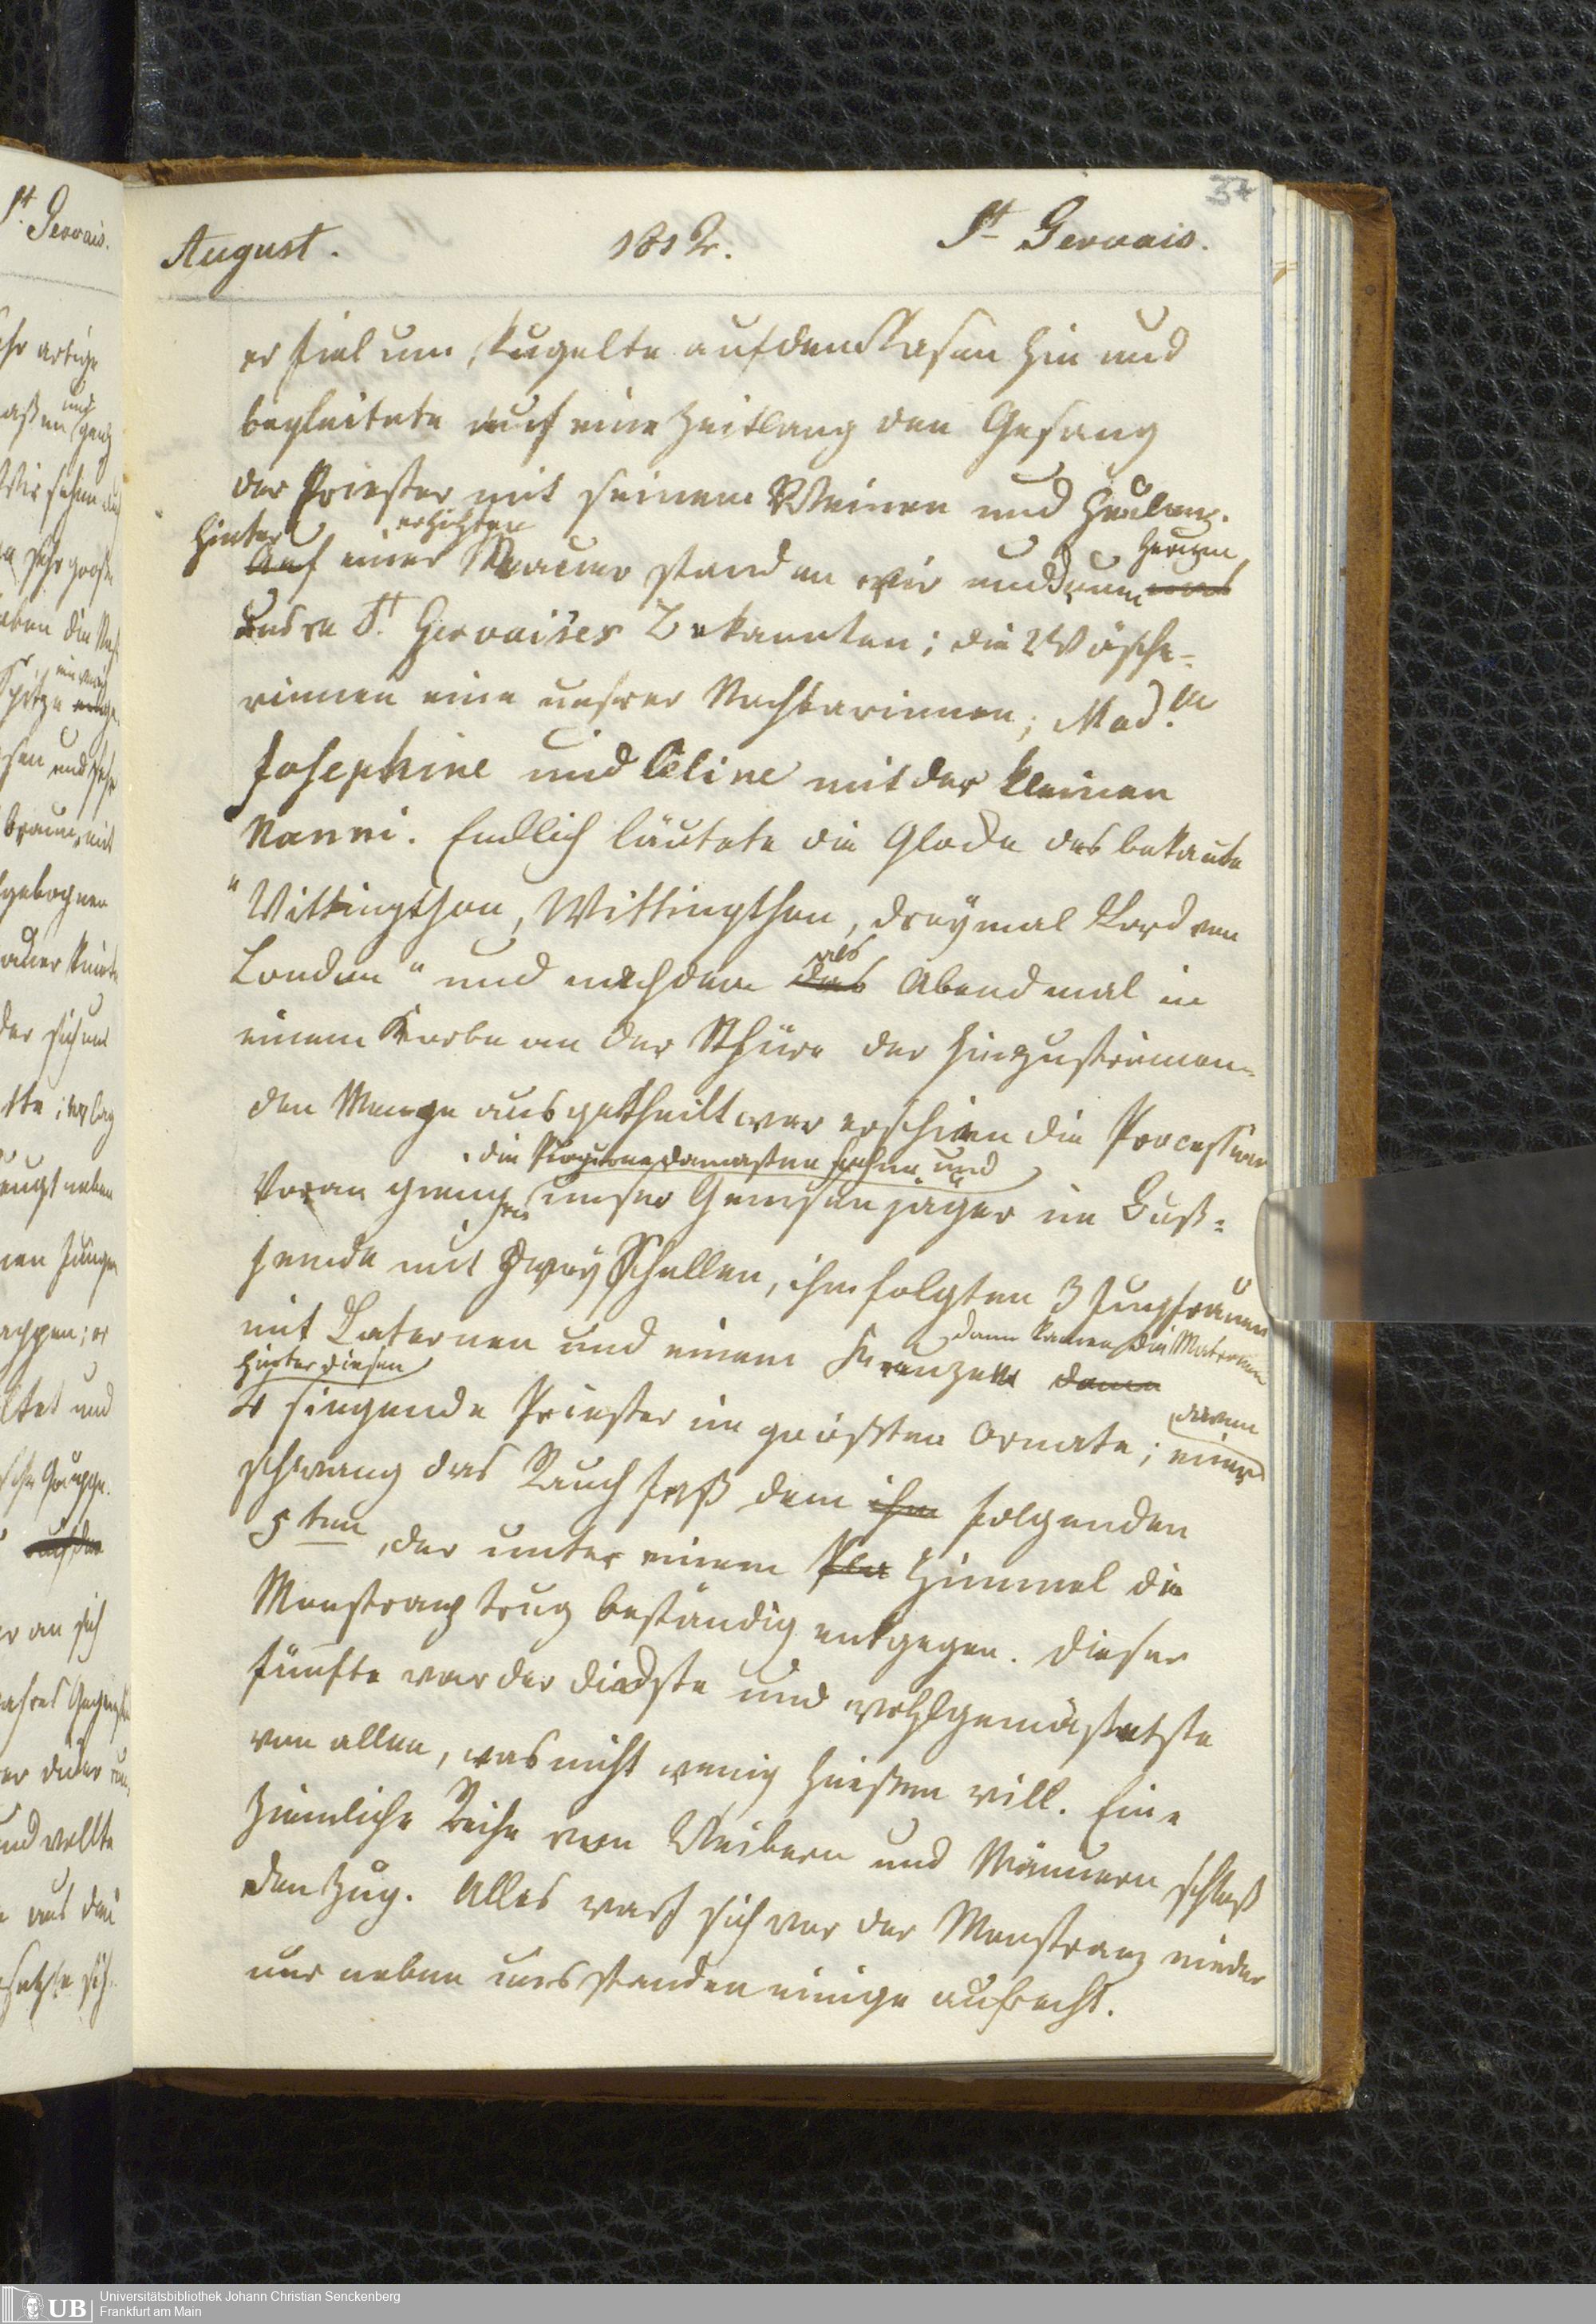 37
August. 1812. St Gervais.
er fiel um, kugelte auf dem Rasen hin und
begleitete auf eine Zeitlang den Gesang
der Priester mit seinem Weinen und Heulen.
Hinter erhöhten herum
Auf einer Mauer standen wir und um uns
unsre St. Gervaiser Bekannten; die Wäsche-
rinnen eine unsrer Nachbarinnen; Mad.lle
Josephine und Celine mit der kleinen
Nanni. Endlich läutete die Glocke das bekannte
"Wittingthon, Wittingthon, dreymal Lord von
London" und nachdem das Abendmal in
als
einem Korbe an der Thüre der hinzuströmen-
den Menge ausgetheilt war erschien die Procession
die damasten Fahne und
Voran gieng unser Gemsenjäger im Buß-
hemde mit zwey Schellen, ihm folgten 3 Jungfrauen
mit Laternen und einem Kreuze dann
dann kamen die Matronen
hinter diesen
4 singende Priester im größten Ornate; einer
davon
schwang das Rauchfaß dem ihm folgenden
5ten, der unter einem Himmel die
Monstranz trug beständig entgegen. Dieser
fünfte war der dickste und wohlgemästetste
von allen, was nicht wenig heißen will. Eine
ziemliche Reihe von Weibern und Männern schloß
den Zug. Alles warf sich vor der Monstranz nieder
nur neben uns standen einige aufrecht.
St. Gervais.
UB
Universitätsbibliothek Johann Christian Senckenberg
Frankfurt am Main